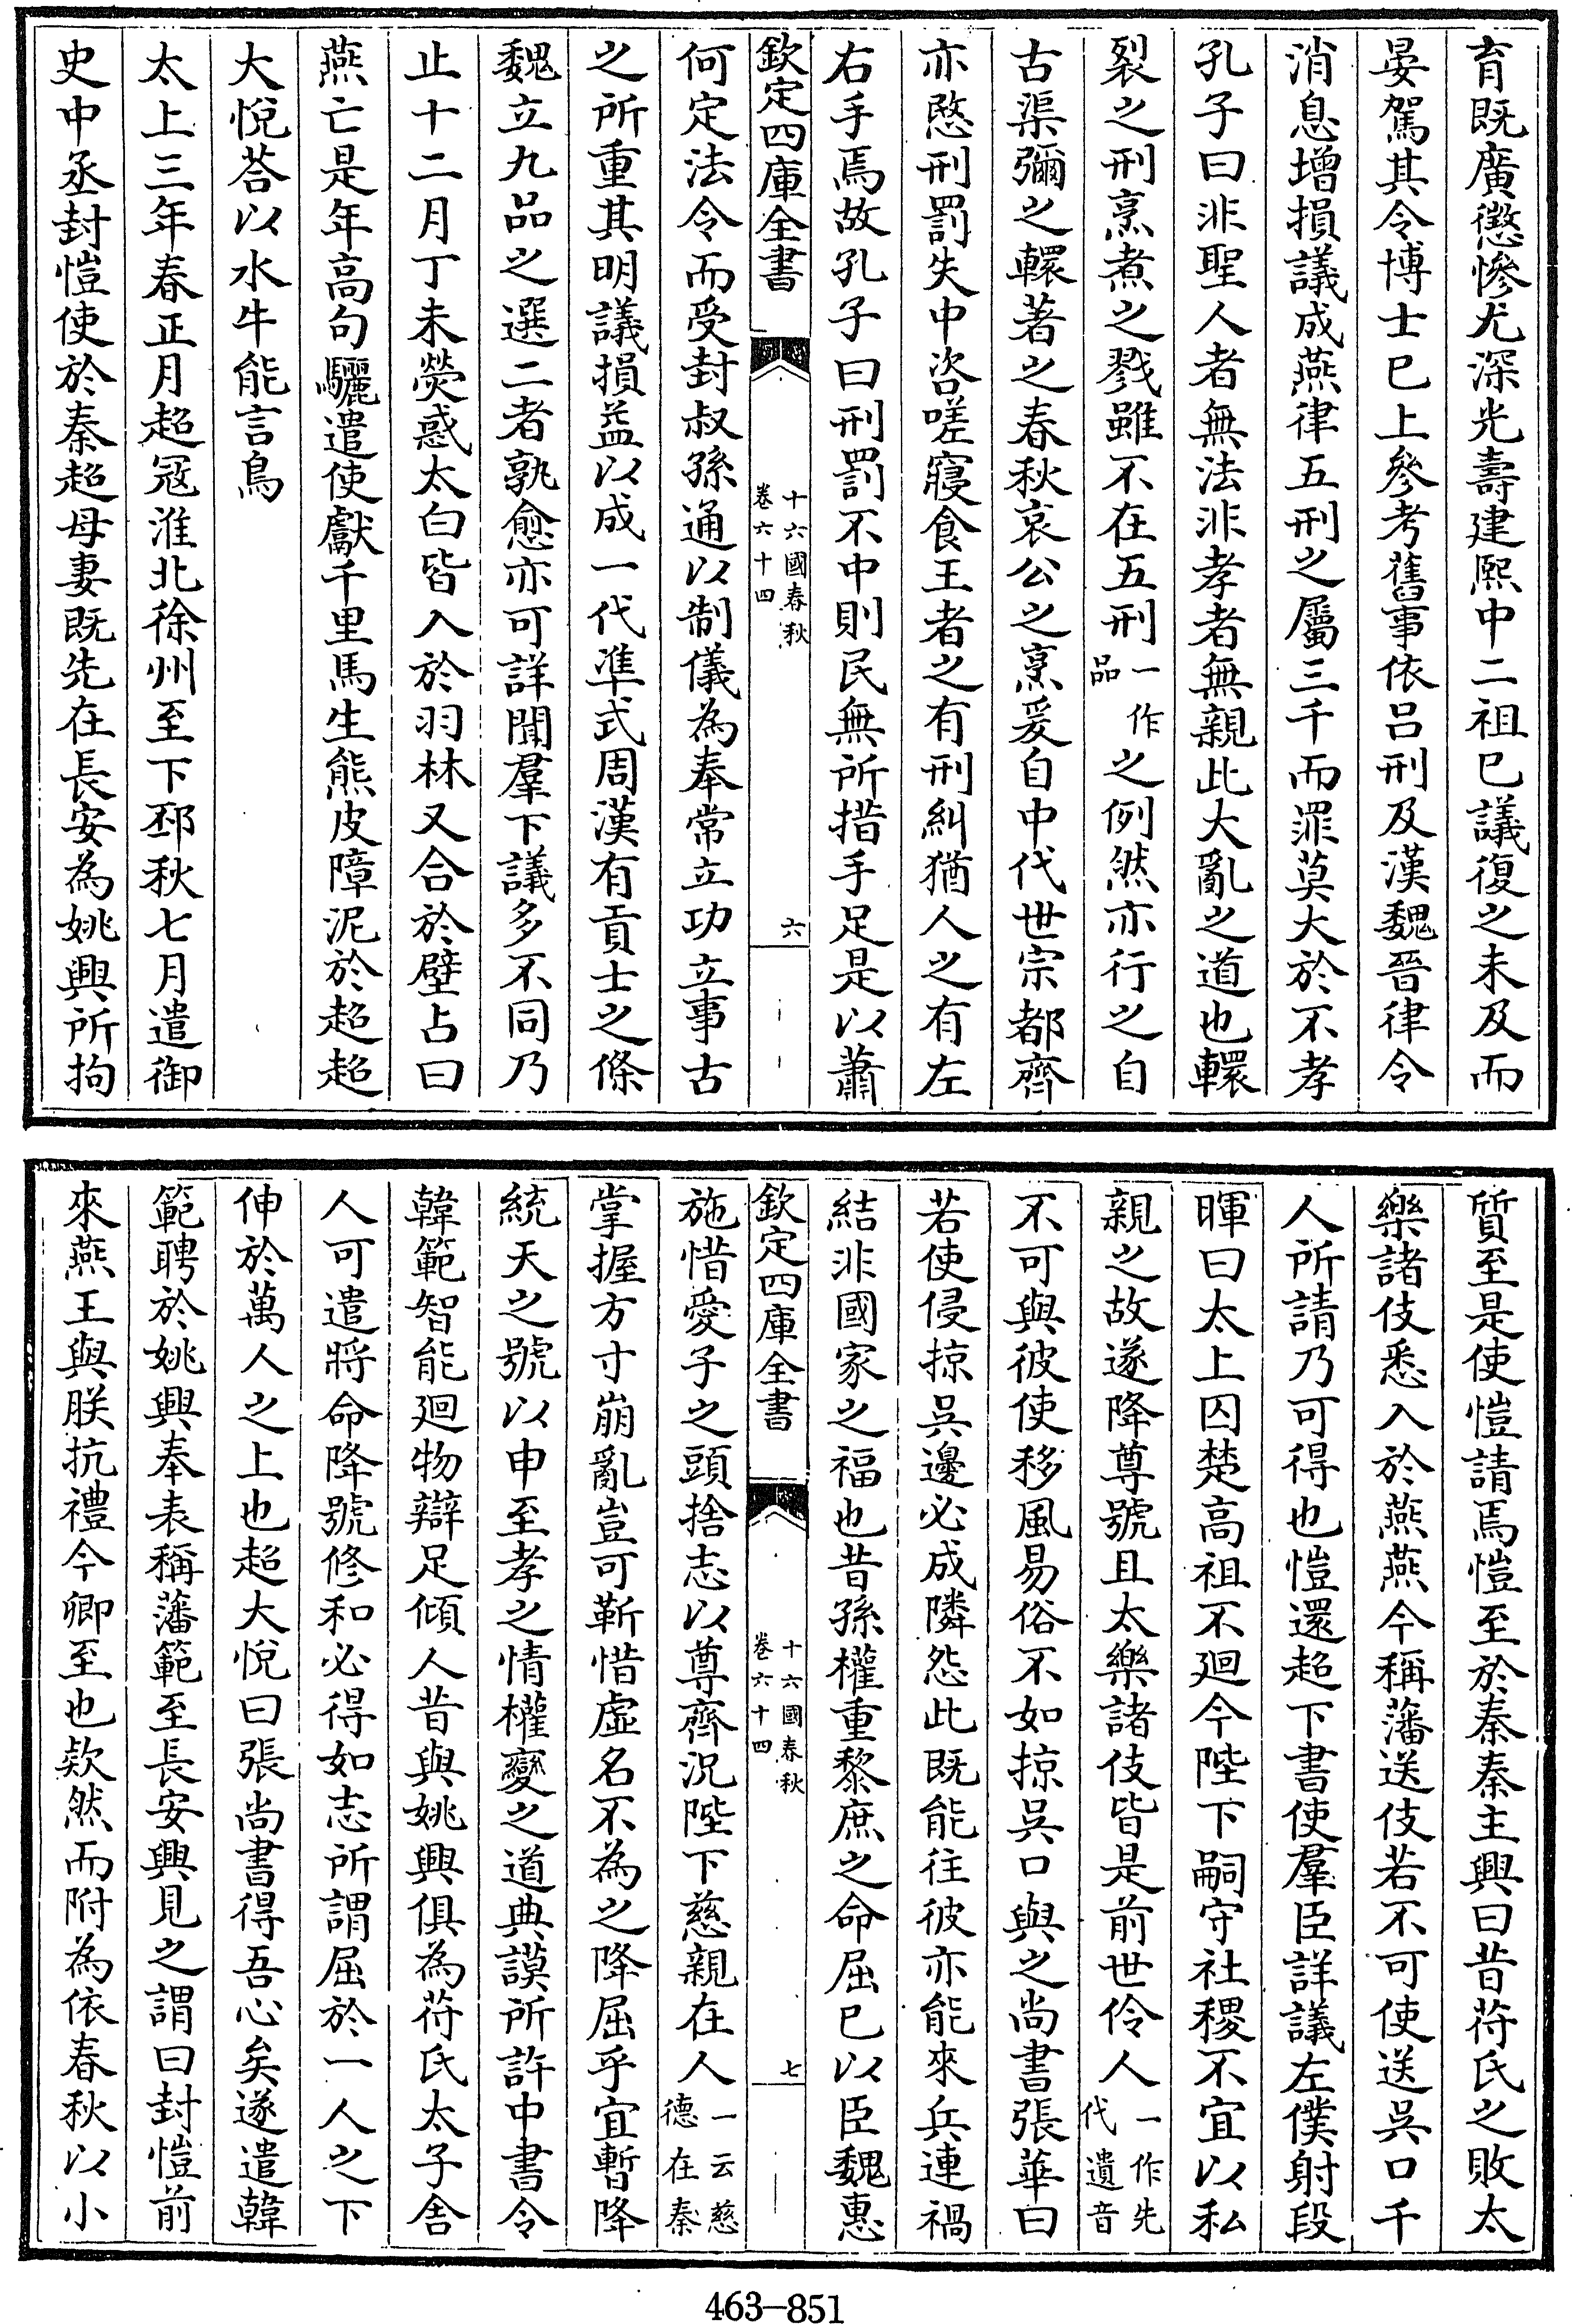 育既廣懲慘尤深光壽建熙中二祖已議復之未及而
晏駕其令博士已上參考舊事依呂刑及漢魏晉律令
消息增損議成燕律五刑之屬三千而罪莫大於不孝
孔子曰非聖人者無法非孝者無親此大亂之道也轘
裂之刑烹煮之戮雖不在五刑一作品之例然亦行之自
古渠彌之轘著之春秋哀公之烹爰自中代世宗都齊
亦愍刑罰失中咨嗟寢食王者之有刑糾猶人之有左
右手焉故孔子曰刑罰不中則民無所措手足是以蕭
欽定四庫全書 十六國春秋 卷六十四 六
何定法令而受封叔孫通以制儀為奉常立功立事古
之所重其明議損益以成一代準式周漢有貢士之條
魏立九品之選二者孰愈亦可詳聞羣下議多不同乃
止十二月丁未熒惑太白皆入於羽林又合於壁占曰
燕亡是年高句驪遣使獻千里馬生熊皮障泥於超超
大悅荅以水牛能言鳥
太上三年春正月超寇淮北徐州至下邳秋七月遣御
史中丞封愷使於秦超母妻既先在長安為姚興所拘
質至是使愷請焉愷至於秦秦主興曰昔苻氏之敗太
樂諸伎悉入於燕燕今稱藩送伎若不可使送吳口千
人所請乃可得也愷還超下書使羣臣詳議左僕射段
暉曰太上囚楚高祖不廻今陛下嗣守社稷不宜以私
親之故遂降尊號且太樂諸伎皆是前世伶人一作先代遺音
不可與彼使移風易俗不如掠吳口與之尚書張華曰
若使侵掠吳邊必成隣怨此既能往彼亦能來兵連禍
結非國家之福也昔孫權重黎庶之命屈已以臣魏惠
欽定四庫全書 十六國春秋 卷六十四 七
施惜愛子之頭捨志以尊齊況陛下慈親在人一云慈德在秦
掌握方寸崩亂豈可靳惜虛名不為之降屈乎宜暫降
統天之號以申至孝之情權變之道典謨所許中書令
韓範智能廻物辯足傾人昔與姚興俱為苻氏太子舍
人可遣將命降號修和必得如志所謂屈於一人之下
伸於萬人之上也超大悅曰張尚書得吾心矣遂遣韓
範聘於姚興奉表稱藩範至長安興見之謂曰封愷前
來燕王與朕抗禮今卿至也欵然而附為依春秋以小
463-851